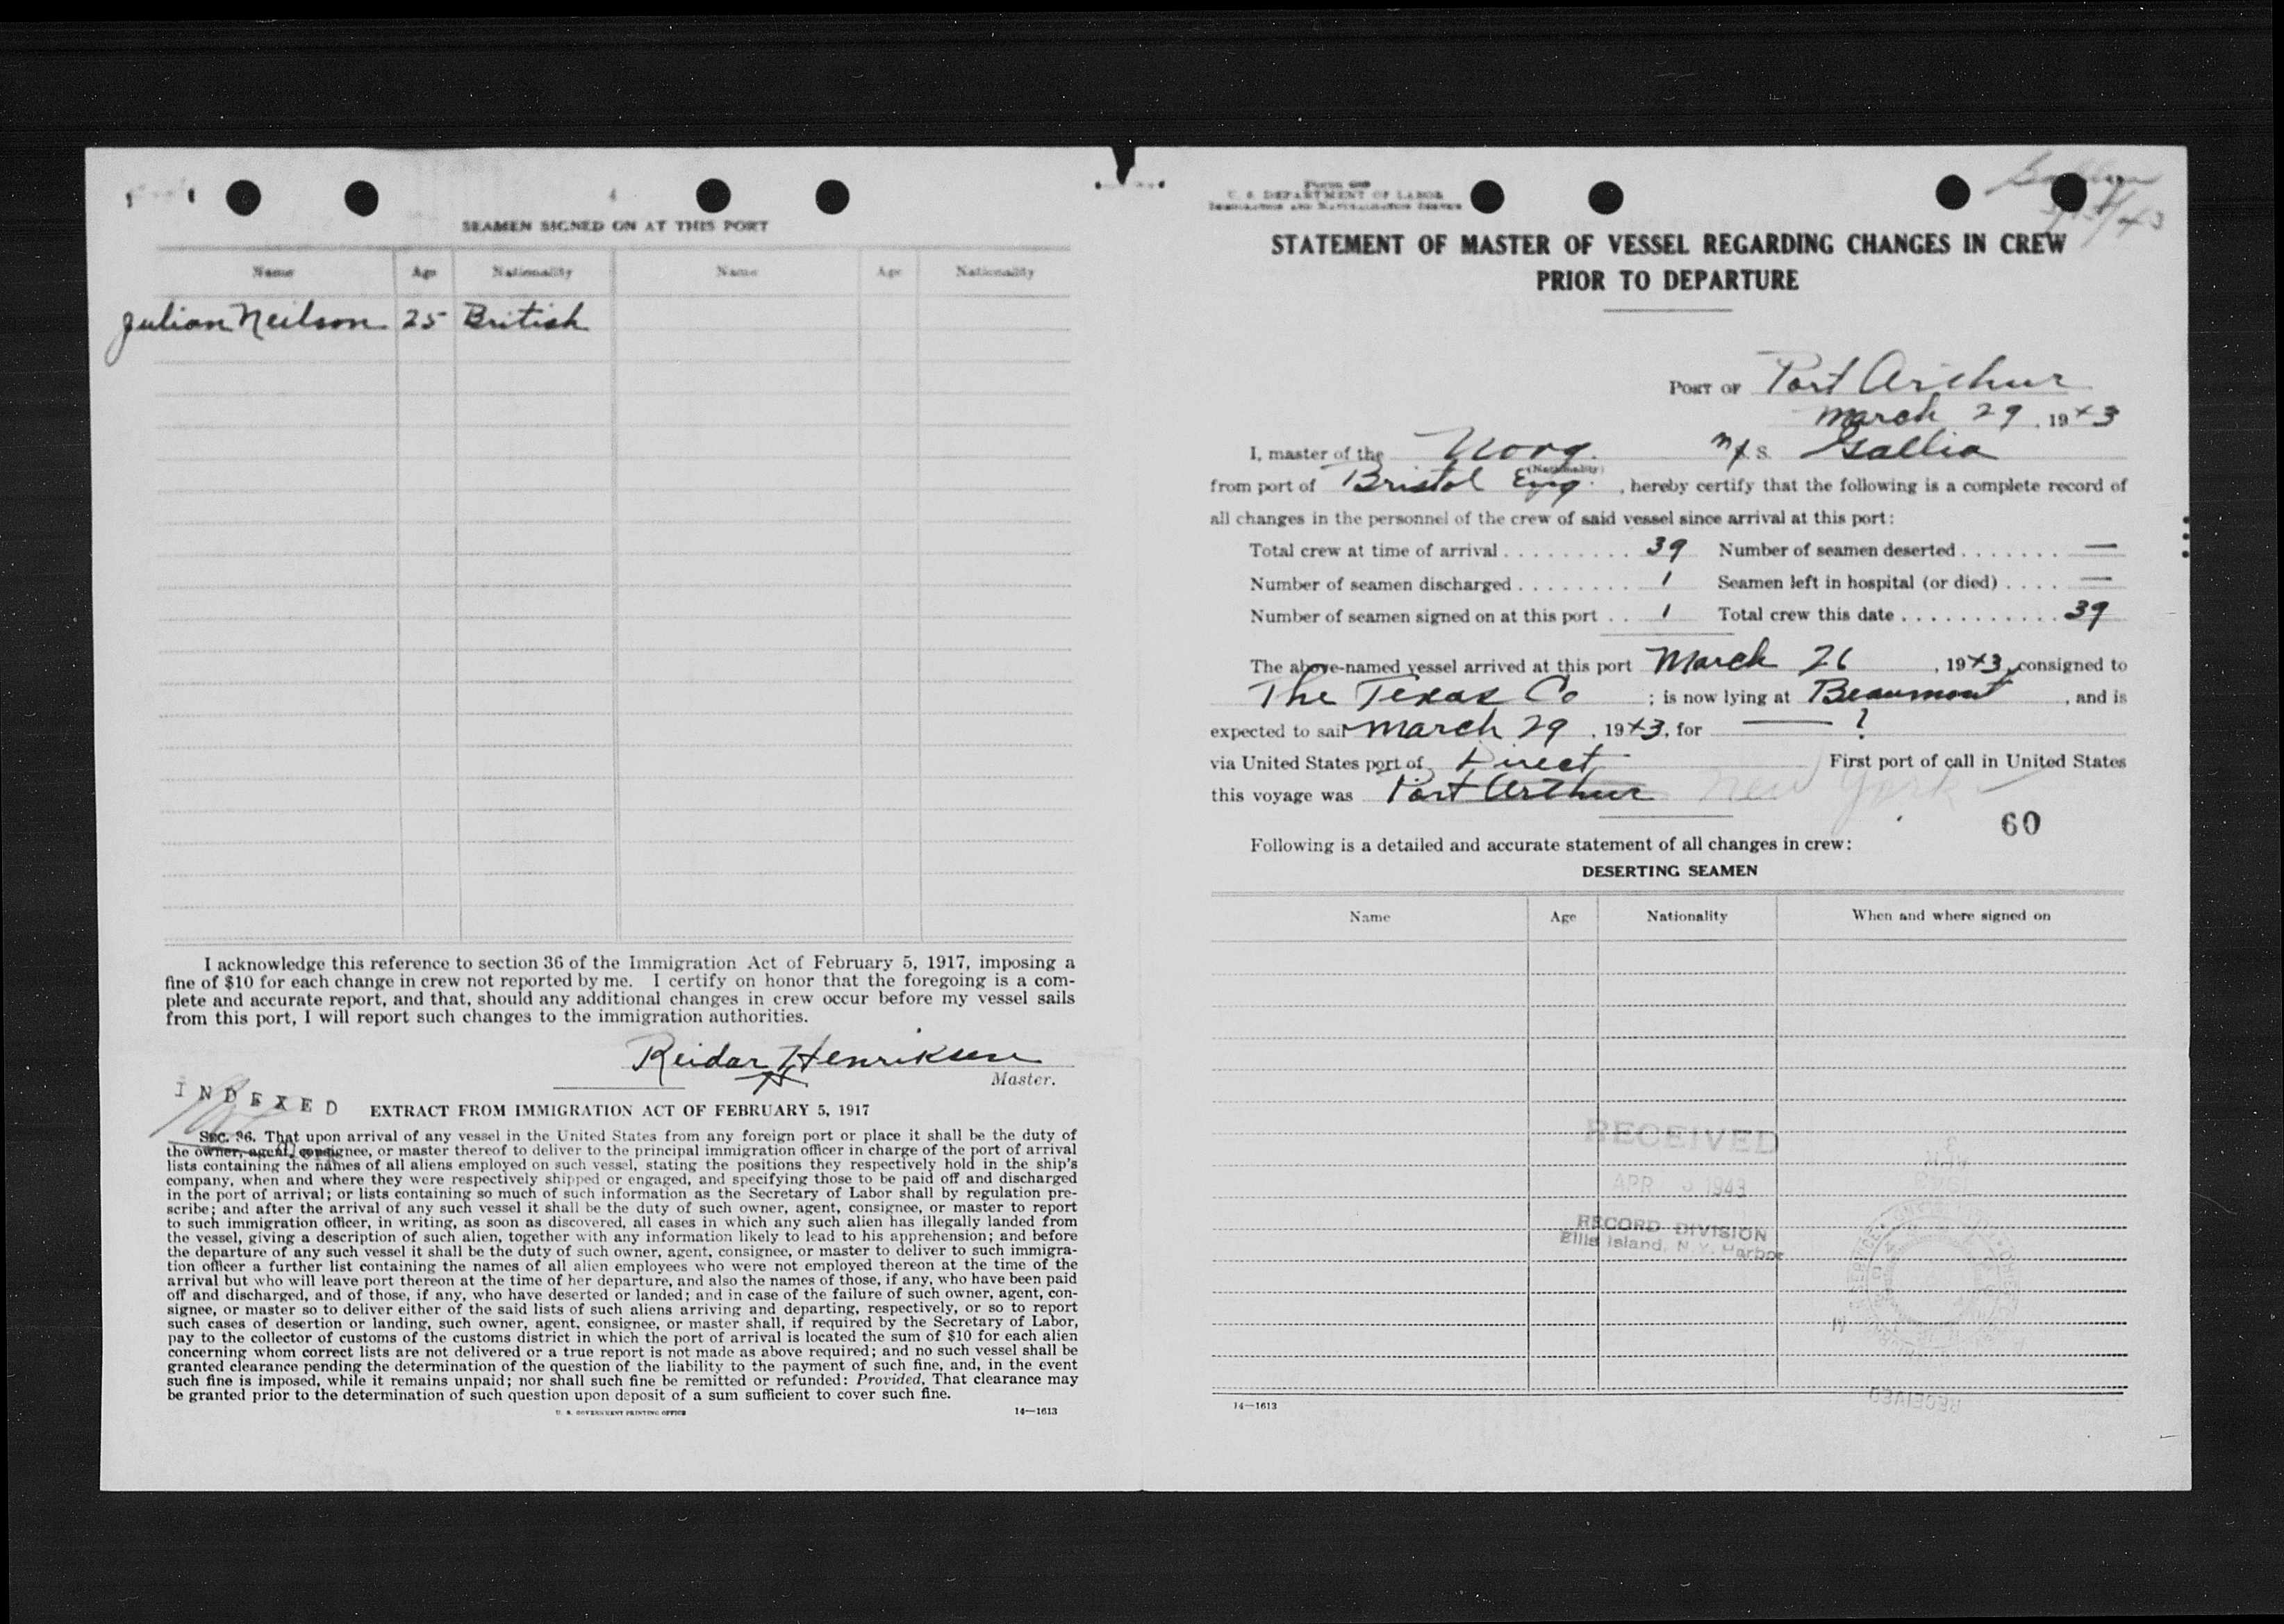 SEAMEN SIGNED ON AT THIS PORT
Name Age Nationality Name Age Nationality
Julian Neilson 25 British
I acknowledge this reference to section 36 of the Immigration Act of February 5, 1917, imposing a
fine of $10 for each change in crew not reported by me. I certify on honor that the foregoing is a com-
plete and accurate report, and that, should any additional changes in crew occur before my vessel sails
from this port, I will report such changes to the immigration authorities.
Reidar Henriksen
Master.
INDEXED
EXTRACT FROM IMMIGRATION ACT OF FEBRUARY 5, 1917
SEC. 36. That upon arrival of any vessel in the United States from any foreign port or place it shall be the duty of
the owner, agent, consignee, or master thereof to deliver to the principal immigration officer in charge of the port of arrival
lists containing the names of all aliens employed on such vessel, stating the positions they respectively hold in the ship's
company, when and where they were respectively shipped or engaged, and specifying those to be paid off and discharged
in the port of arrival; or lists containing so much of such information as the Secretary of Labor shall by regulation pre-
scribe; and after the arrival of any such vessel it shall be the duty of such owner, agent, consignee, or master to report
to such immigration officer, in writing, as soon as discovered, all cases in which any such alien has illegally landed from
the vessel, giving a description of such alien, together with any information likely to lead to his apprehension; and before
the departure of any such vessel it shall be the duty of such owner, agent, consignee, or master to deliver to such immigra-
tion officer a further list containing the names of all alien employees who were not employed thereon at the time of the
arrival but who will leave port thereon at the time of her departure, and also the names of those, if any, who have been paid
off and discharged, and of those, if any, who have deserted or landed; and in case of the failure of such owner, agent, con-
signee, or master so to deliver either of the said lists of such aliens arriving and departing, respectively, or so to report
such cases of desertion or landing, such owner, agent, consignee, or master shall, if required by the Secretary of Labor,
pay to the collector of customs of the customs district in which the port of arrival is located the sum of $10 for each alien
concerning whom correct lists are not delivered or a true report is not made as above required; and no such vessel shall be
granted clearance pending the determination of the question of the liability to the payment of such fine, and, in the event
such fine is imposed, while it remains unpaid; nor shall such fine be remitted or refunded: Provided, That clearance may
be granted prior to the determination of such question upon deposit of a sum sufficient to cover such fine.
U. S. GOVERNMENT PRINTING OFFICE 14—1613
U. S. DEPARTMENT OF LABOR
IMMIGRATION AND NATURALIZATION SERVICE
STATEMENT OF MASTER OF VESSEL REGARDING CHANGES IN CREW
PRIOR TO DEPARTURE
PORT OF Port Arthur
March 29, 1943
I, master of the Norg. M/S. Gallia
(Nationality)
from port of Bristol Eng., hereby certify that the following is a complete record of
all changes in the personnel of the crew of said vessel since arrival at this port:
Total crew at time of arrival 39 Number of seamen deserted —
Number of seamen discharged 1 Seamen left in hospital (or died) —
Number of seamen signed on at this port 1 Total crew this date 39
The above-named vessel arrived at this port March 26, 1943, consigned to
The Texas Co; is now lying at Beaumont, and is
expected to sail March 29, 1943, for — ?
via United States port of Direct First port of call in United States
this voyage was Port Arthur New York
60
Following is a detailed and accurate statement of all changes in crew:
DESERTING SEAMEN
Name Age Nationality When and where signed on
RECEIVED
APR 3 1943
RECORD DIVISION
Ellis Island, N. Y. Harbor
RECEIVED
14—1613